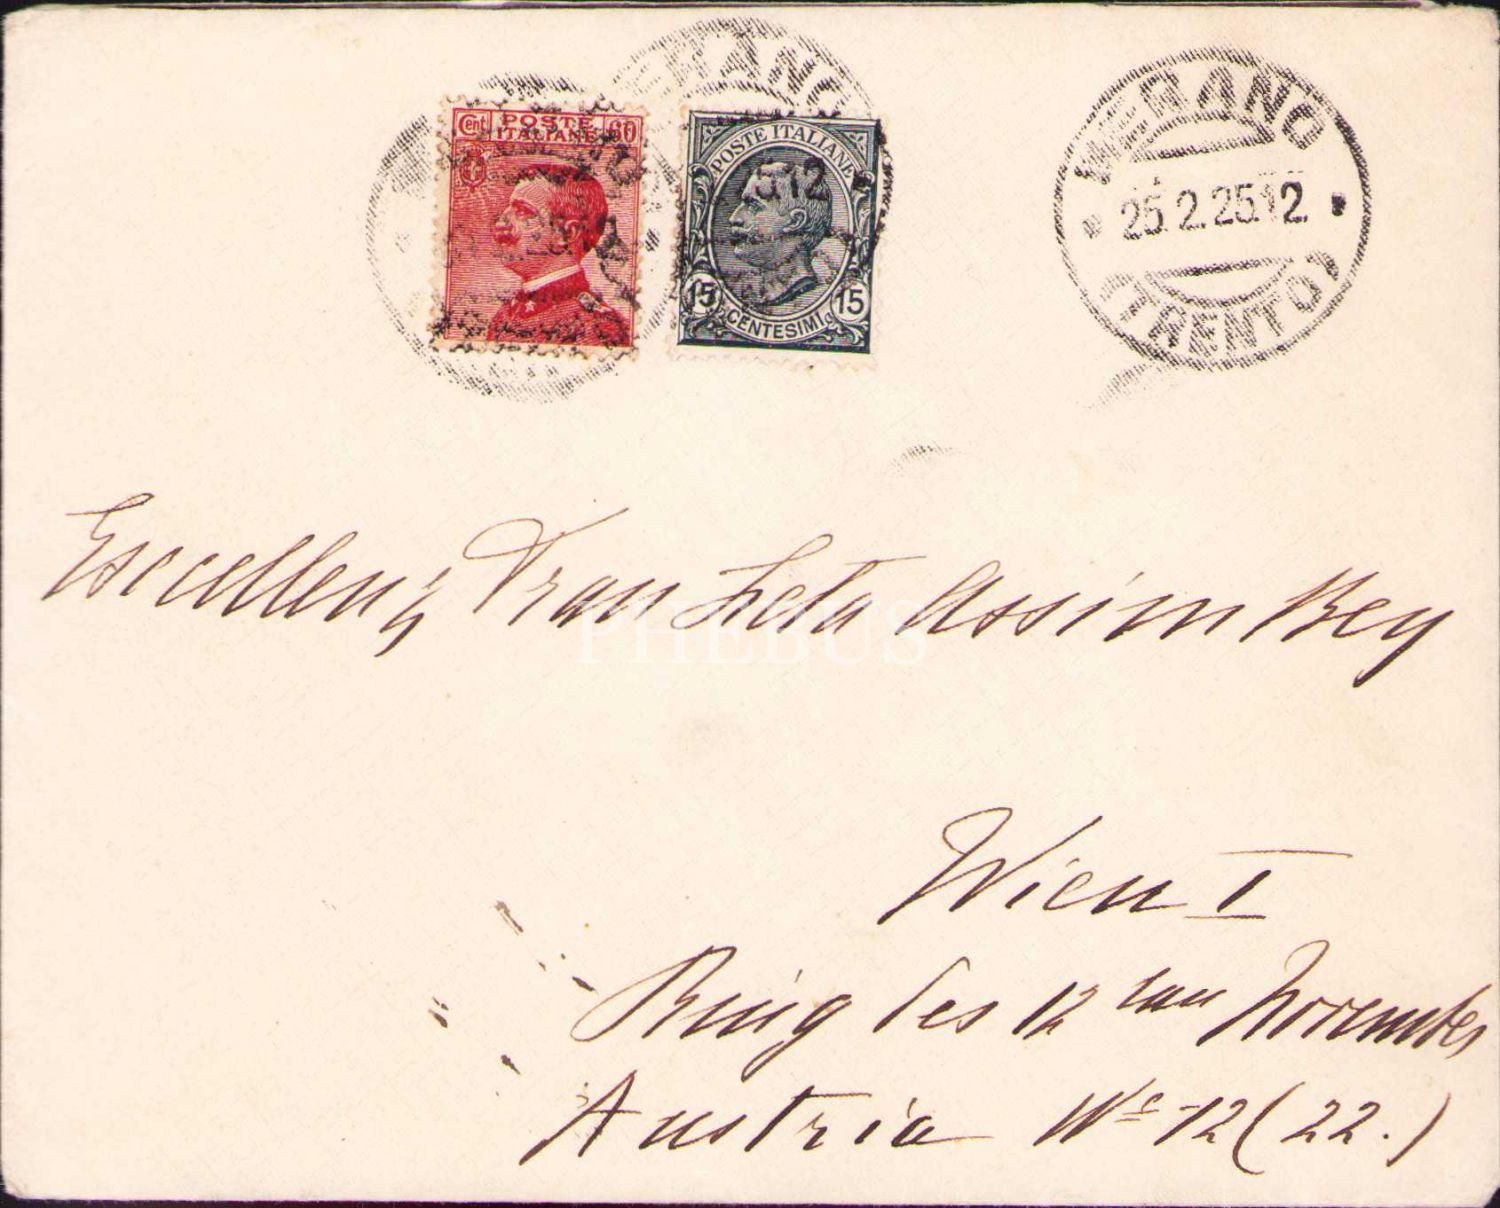 Cent POSTE ITALIANE 60
POSTE ITALIANE
15 CENTESIMI 15
ERANO
25.12
MERANO
25.2.25.12.
(TRENTO)
Esccellenz Frau Leta Assim Bey
PHEBUS
Wien I
Ring des 12 ten November
Austria No 12 (22.)